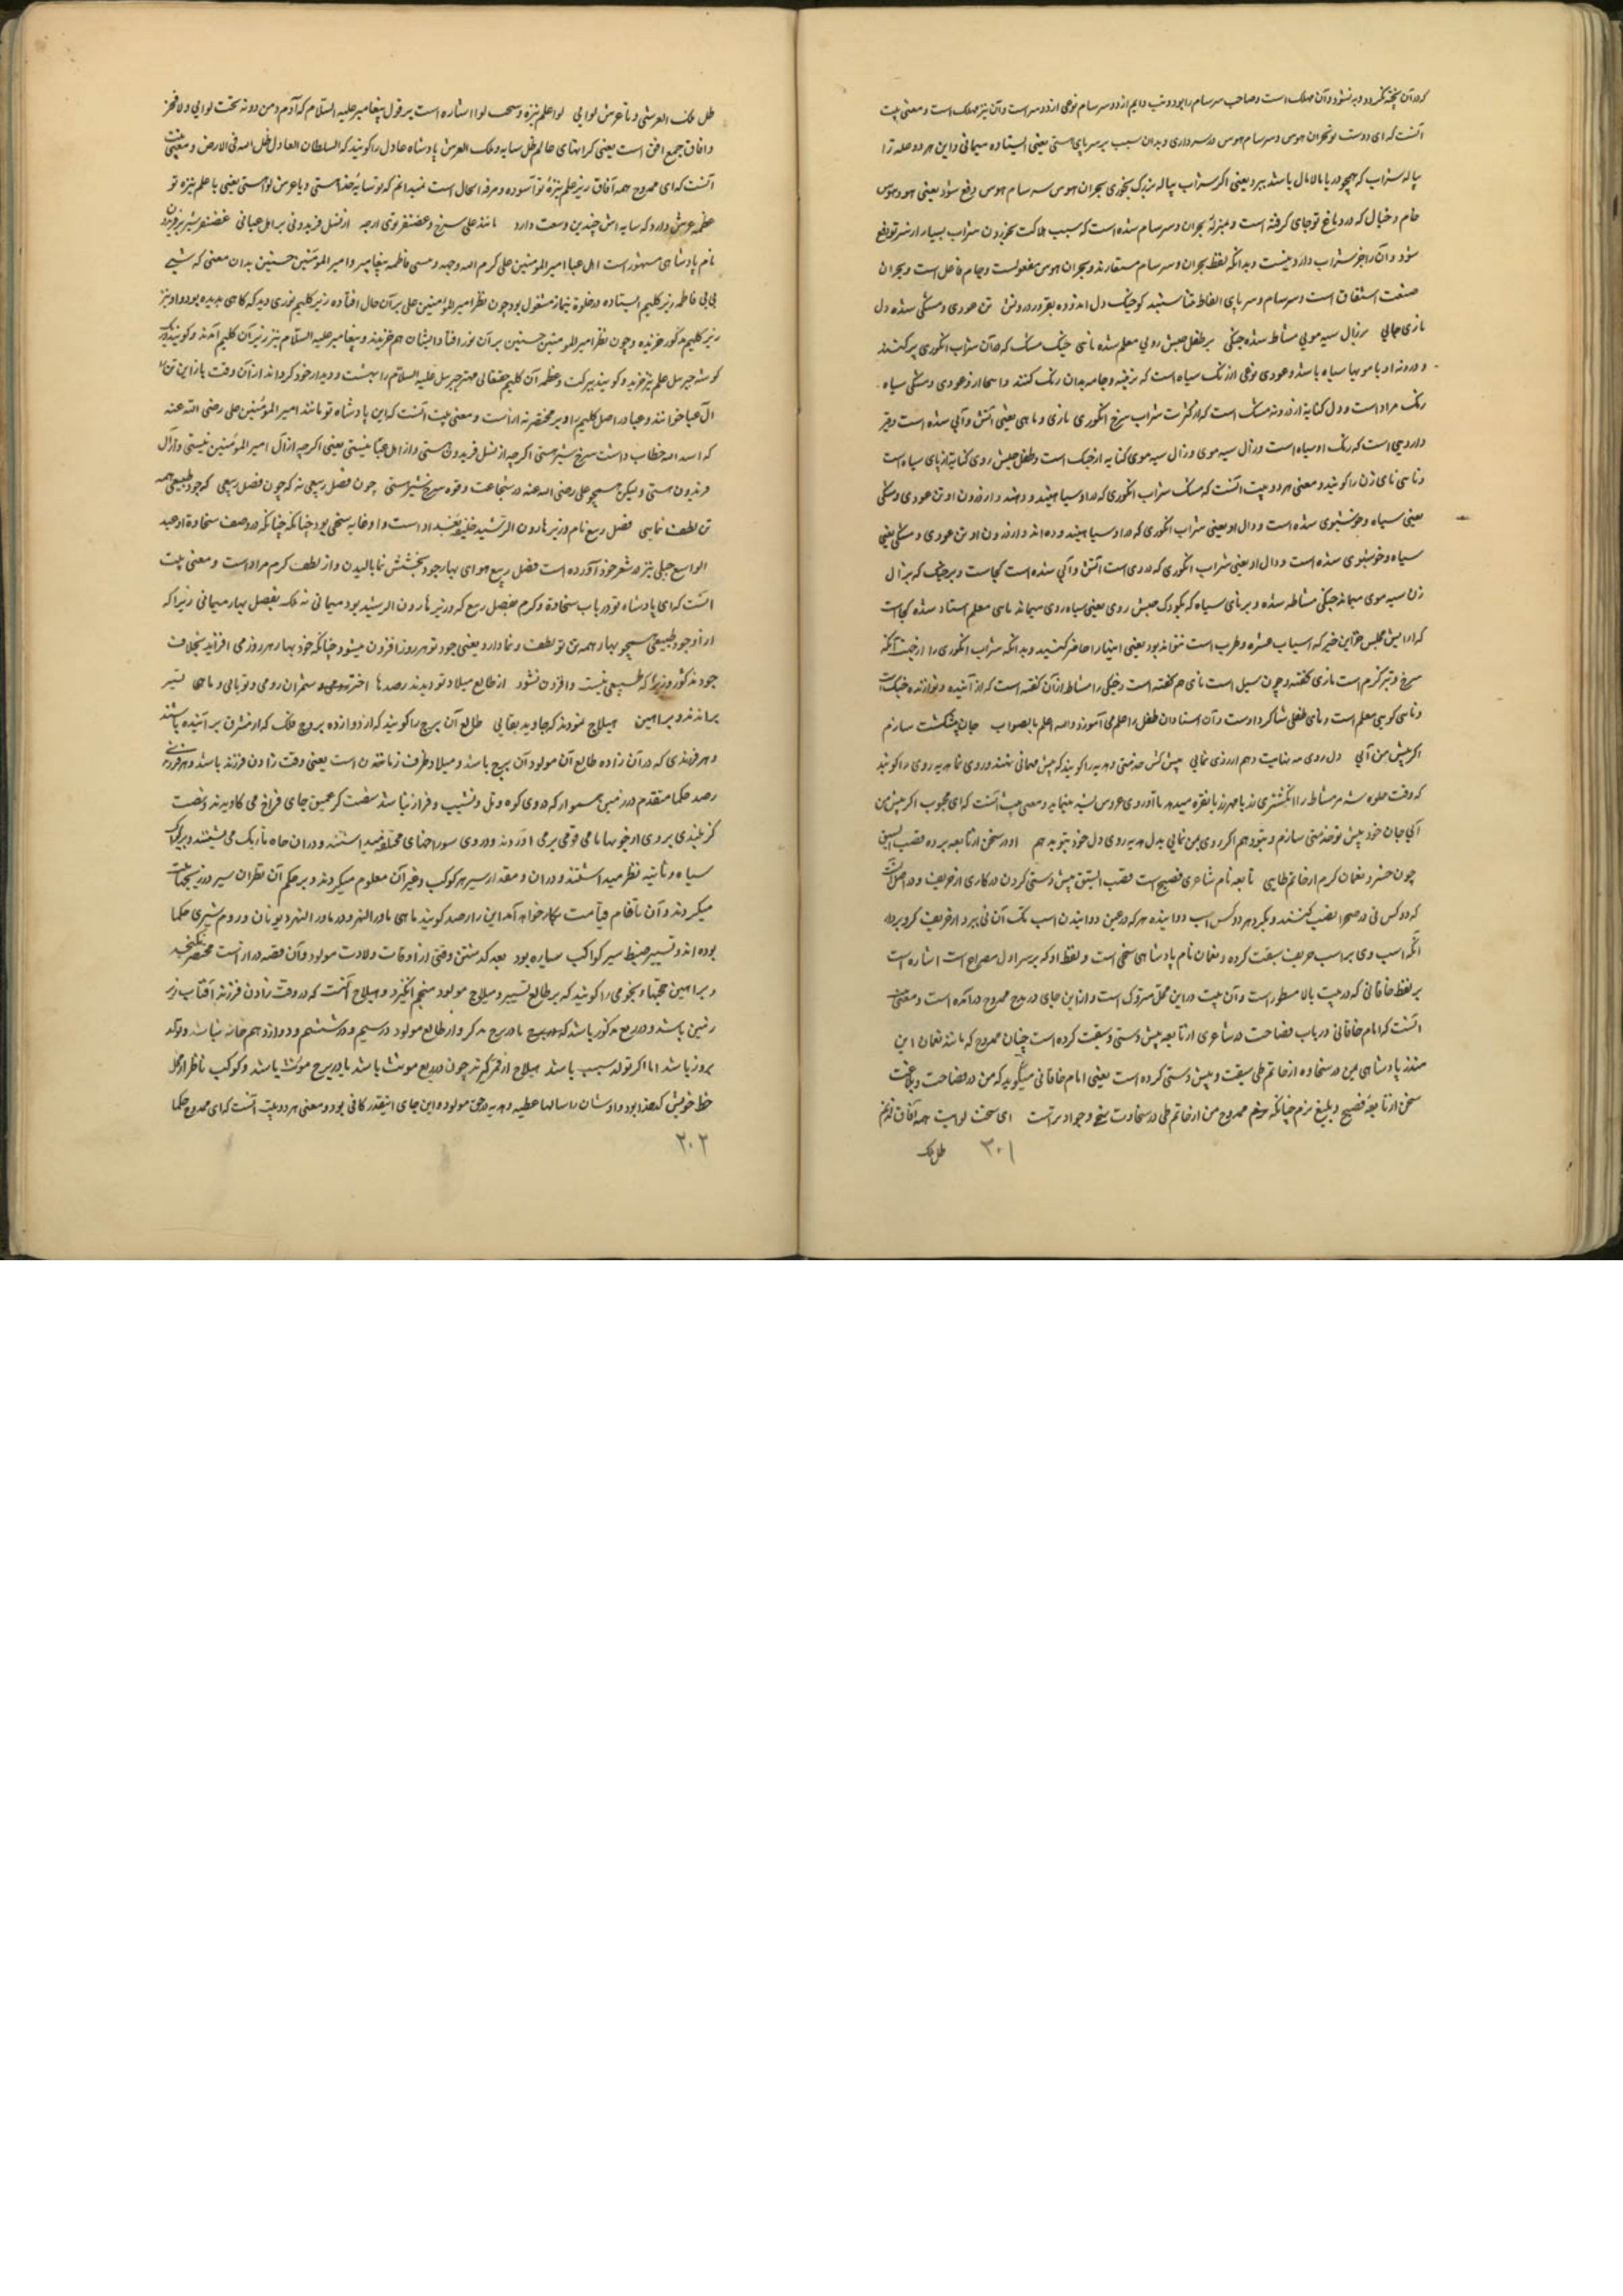 که در آن پخته نگردد و به نشود و آن مهلک است و صاحب سرسام را بود و تب دایم از دو سرسام نوعی از درد سر است و آن نیز مهلک است و معنی بیت
آنست که ای دوست تو بحران هوس و سرسام هوس در سر داری و بدان سبب بر سر پای هستی یعنی ایستاده میمانی و این هر دو علت را
پیاله شراب که همچو دریا مالامال باشد ببرد یعنی اگر شراب پیاله بزرگ بخوری بحران هوس سرسام هوس دفع شود یعنی هوس
خام و خیال که در دماغ تو جای گرفته است و بمنزله بحران و سرسام شده است که سبب هلاکت بخوردن شراب بسیار از سر تو دفع
شود و آن را جز شراب دارو نیست و بدانکه لفظ بحران و سرسام مستعارند و بحران هوس مفعولست و جام فاعل است و بحران
صنعت اشتقاق است و سرسام و سر پای الفاظ متناسبند کو خیک دل اندوده بقیر درونش تن عودی و مشکی شده دل
ناری و مایی بر زال سیه مویی مشاطه شده چنگی بر طفل حبش رویی معلم شده نایی خیک مشک که در آن شراب انگوری پر کنند
و درونه او با مویها سیاه باشد و عودی نوعی از رنگ سیاه است که جامه بدان رنگ کنند و اینجا از عودی و مشکی سیاه
رنگ مراد است و دل کنایه از درونه مشک است که از کثرت شراب سرخ انگوری ناری و مایی یعنی آتش و آبی شده است و قیر
دارویی است که رنگ او سیاه است و زال سیه موی و زال سیه موی کنایه از چنگ است و طفل حبش روی کنایه از نای سیاه است
و نایی نای زن را گویند و معنی هر دو بیت آنست که مشک شراب انگوری که در او سیاهی و از درون او تن عودی و مشکی
یعنی سیاه و خوشبوی شده است و دل او یعنی شراب انگوری که در او سیاهی داده اند و از درون او تن عودی و مشکی یعنی
سیاه و خوشبوی شده است و دل او یعنی شراب انگوری که در وی است آتش و آبی شده است کجاست و بر چنگ که بزال
زن سیه موی میماند چنگی مشاطه شده و بر نای سیاه که بکودک حبش روی یعنی سیاه روی میماند نایی معلم استاد شده کجاست
که آرایش مجلس جز این چیز که اسباب عشرت و طرب است نتواند بود یعنی اینها را حاضر کنید و بدانکه شراب انگوری را از جهت آنکه
سرخ و تیز گرم است ناری گفته و چون سیل است مایی هم گفته است و چنگی را مشاطه از آن گفته است که آراینده و نوازنده چنگ است
و نایی گویی معلم است و نای طفلی شاگرد اوست و آن استادان طفل را علم می آموزد والله اعلم بالصواب جان پیشکشت سازم
اگر پیش من آیی دل روی نمایت دهم ار روی نمایی پیش کش خدمتی و هدیه را گویند که پیش مهمانی نهند و روی نما هدیه روی را گویند
که وقت جلوه شه مر مشاطه را انگشتری زر یا مهر زر یا نقره میدهد تا او روی عروس بشه بنماید و معنی بیت آنست که ای محبوب اگر پیش من
آیی جان خود پیش تو خدمتی سازم و بتو دهم اگر روی بمن نمایی بدل هدیه روی دل خود بتو بدهم او در سخن از نابغه برده قصب السبق
چون خسرو نعمان کرم از حاتم طایی نابغه نام شاعری فصیح است قصب السبق پیش دستی کردن در کاری از حریف و در اصل آنست
که دو کس نی در صحرا نصب کنند و یکبار هر دو کس اسب دوانیده هر که در عین دوانیدن اسب یک آن نی ببرد از حریف گرو برده
آنکه اسب وی بر اسب حریف سبقت کرده و نعمان نام پادشاهی سخی است و لفظ او که بر سر اول مصراع است اشاره است
بر لفظ خاقانی که در بیت بالا مسطور است و آن بیت در این محل متروک است و از این جای در مدح ممدوح درآمده است و معنی بیت
آنست که امام خاقانی در باب فصاحت در شاعری از نابغه پیش دستی و سبقت کرده است چنان ممدوح که مانند نعمان ابن
منذر پادشاهی یمن در سخاوت از حاتم طی سبقت و پیش دستی کرده است یعنی امام خاقانی میگوید که من در فصاحت و بلاغت
سخن از نابغه فصیح و بلیغ ترم چنانکه ممدوح من از حاتم طی در سخاوت سخی و جواد تر است ای تحت لوایت همه آفاق تو هم
۳۰۱ ظل ملک
ظل ملک العرشی و با عرش لوایی لوا علم نیزه و تحت لوا اشاره است بر قول پیغامبر علیه السلام که آدم و من دونه تحت لوایی و لا فخر
و آفاق جمع افق است یعنی کرانهای عالم ظل سایه و ملک العرش پادشاه عادل را گویند که السلطان العادل ظل الله فی الارض و معنی بیت
آنست که ای ممدوح همه آفاق زیر علم نیزهٔ تو آسوده و مرفه الحال است نمیدانم که تو سایهٔ خدا هستی و یا عرش لوا هستی یعنی یا علم نیزه تو
عظمت عرش دارد که سایه اش چندین وسعت دارد مانند علی سرخ و غضنفر توی ارچه از نسل فریدونی نه ز اهل عبائی غضنفر شیر نر فریدون
نام پادشاهی مشهور است اهل عبا امیر المومنین علی کرم الله وجهه و بی بی فاطمه و پیغامبر و امیر المومنین حسنین بدان معنی که شبی
بی بی فاطمه زیر گلیم ایستاده در خلوت بنماز مشغول بود چون نظر امیر المؤمنین علی بر آن حال افتاد زیر گلیم نوری دید که گاهی ندیده بود و او نیز
زیر گلیم مذکور خزیده و چون نظر امیر المومنین حسنین بر آن نور افتاد ایشان هم خزیدند و پیغامبر علیه السلام نیز زیر آن گلیم آمدند و گویند در یک
گوشه جبرئیل علم نیز خزید و گویند ببرکت و عظمت آن گلیم حقتعالی مهتر جبرئیل علیه السلام را بهشت و دیدار خود گرداند از آن وقت باز این پنج تن را
آل عبا خوانند و عبا در اصل گلیم را و بر مختصر نه از راست و معنی بیت آنست که این پادشاه تو مانند امیر المؤمنین علی رضی الله عنه
که اسد الله خطاب داشت سرخ شیر هستی اگر چه از نسل فریدون هستی و از اهل عبا نیستی یعنی اگر چه از آل امیر المؤمنین نیستی و از آل
فریدون هستی ولیکن همچو علی رضی الله عنه در شجاعت و قوت سرخ شیر هستی چون فضل ربیعی نه که چون فصل ربیعی که جود طبیعی همه
تن لطف نمایی فضل ربیع نام وزیر هارون الرشید خلیفه بغداد است و او بغایت سخی بود چنانکه در وصف سخاوت او عبد
الواسع جبلی نیز در شعر خود آورده است فصل ربیع هوای بهار جود بخشش نما بالیدن و از لطف کرم مراد است و معنی بیت
آنست که ای پادشاه تو در باب سخاوت و کرم بفضل ربیع که وزیر هارون الرشید بود میمانی نه بلکه بفصل بهار میمانی زیرا که
از جود طبیعی همچو بهار همه تن تو لطف و نما دارد یعنی جود تو هر روز افزون میشود چنانکه خود بهار هر روز می افزاید بخلاف
جود مذکور وزیر که طبیعی نیست و افزون نشود از طالع میلاد تو دیدند رصدها اختر شمران رومی و یونانی و مایی تسییر
براندند و براهین هیلاج نمودند که جاوید بقایی طالع آن برج را گویند که از دوازده بروج فلک که از مشرق بر آینده باشند
و هر فرزندی که در آن زاده طالع آن مولود آن برج باشد و میلاد ظرف زمان است یعنی وقت زادن فرزند باشد
رصد حکما متقدم در زمین هموار که در وی کوه و تل و نشیب و فراز نباشد شصت گز عمیق جای فراخ می کاویدند و شصت
گز بلندی بر وی از خوبها بامی قوی برمی آوردند و در وی سوراخهای مختلفه میداشتند و در آن چاه تاریک می نشستند و بر یک
سیاه و ثانیه نظر میداشتند و در آن و مقدار سیر هر کوکب و غیر آن معلوم میکردند و بر حکم آن نظران سیر در زیجهات
میکردند و آن تا قام قیامت بکار خواهد آمد این را رصد گویند مایی ماوراء النهر و در ماوراء النهر و یونان و روم بیشتری حکما
بوده اند و تسییر ضبط سیر کواکب سیاره بود بعد گذشتن وقتی از اوقات ولادت مولود و آن قصه دراز است مختصر نگنجد
و براهین حجتها و نجومی را گویند که بر طالع تسییر و هیلاج مولود منجم انگیزد و هیلاج آنست که در وقت زادن فرزند آفتاب زبر
زمین باشد و در ربع مذکور باشد که برج یا در برج مذکر و از طالع مولود در سیم و در ششم و دوازدهم خانه نباشد و تولد
بروز باشد اما اگر تولد بشب باشد هیلاج از قمر گیرند چون در ربع مونث باشد یا در برج مؤنث باشد و کوکب ناظر از محل
حظ خویش کدخدا بود و او شان را سالها عطیه دهد در حق مولود و این جای اینقدر کافی بود و معنی هر دو بیت آنست که ای ممدوح حکما
۲۰۲